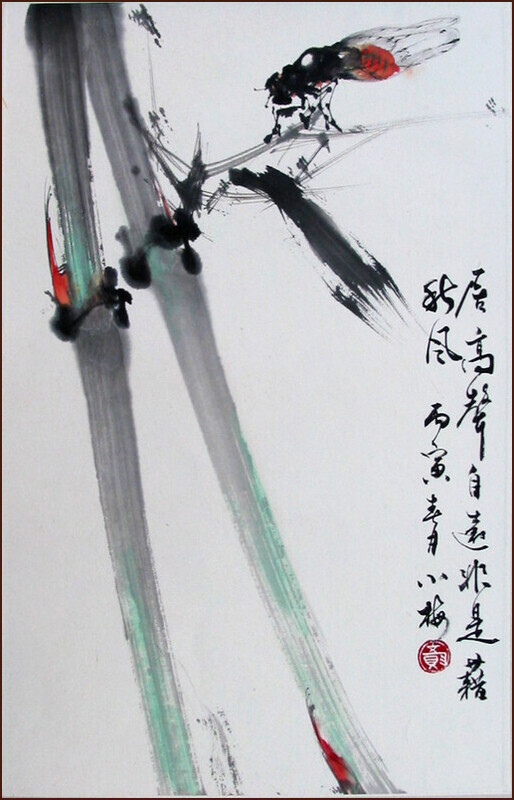 居高聲自遠非是藉
秋风 丙寅春月小梅